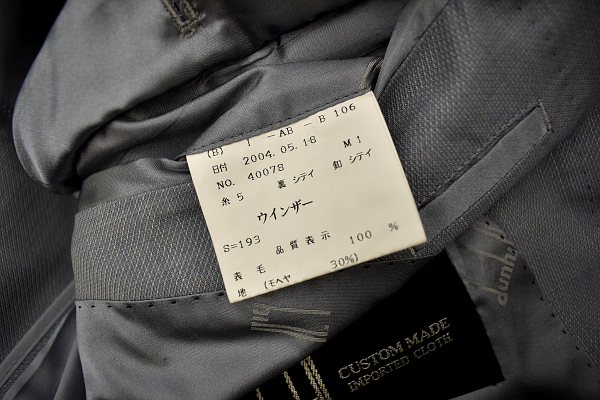 (B) 1 -AB - B 106
日付 2004.05.18 M1
NO. 40078
糸5 裏 シテイ 釦 シテイ
ウインザー
S=193
品質表示 100 %
表 毛
地 (モヘヤ 30%)
dunh
CUSTOM MADE
IMPORTED CLOTH